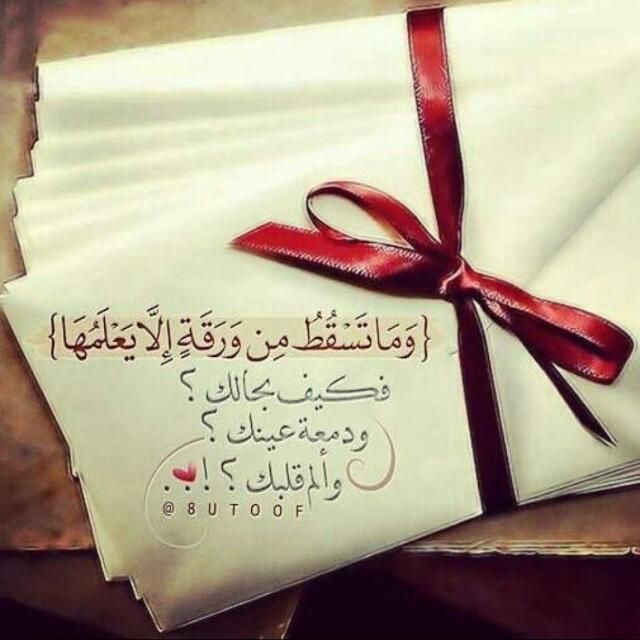 {وَمَا تَسْقُطُ مِن وَرَقَةٍ إِلَّا يَعْلَمُهَا}
فكيف بحالك ؟
ودمعة عينك ؟
وألم قلبك ؟ ! . .
@8UTOOF